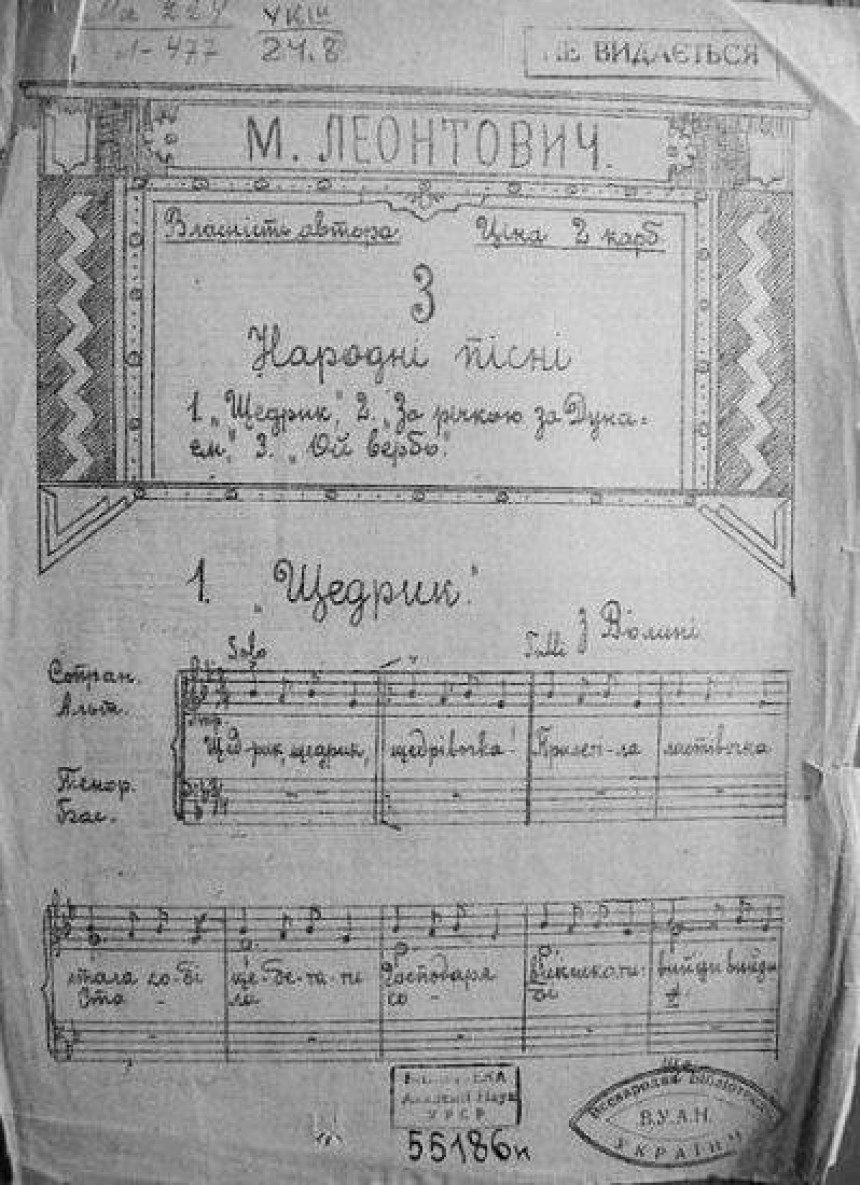 УКІИ
1-477 24.8
НЕ ВИДАЄТЬСЯ
М. ЛЕОНТОВИЧ.
Власність автора Ціна 2 карб.
3
Народні пісні
1. „Щедрик", 2. „За річкою за Дуна-
єм," 3. „Ой вербо."
1. „Щедрик."
Solo Tutti З Волині
Сопран.
Альт.
Щед-рик, щедрик, щедрівочка! Прилеті-ла ластівочка
Тенор.
Бас.
стала со-бі ще-бе-та-ти Господаря викликати: вийди вийди
Ста - ла со - бі
БІБЛІОТЕКА
Академії Наук
УРСР
55186н
Всенародня Бібліотека
В.У.А.Н.
УКРАЇНИ